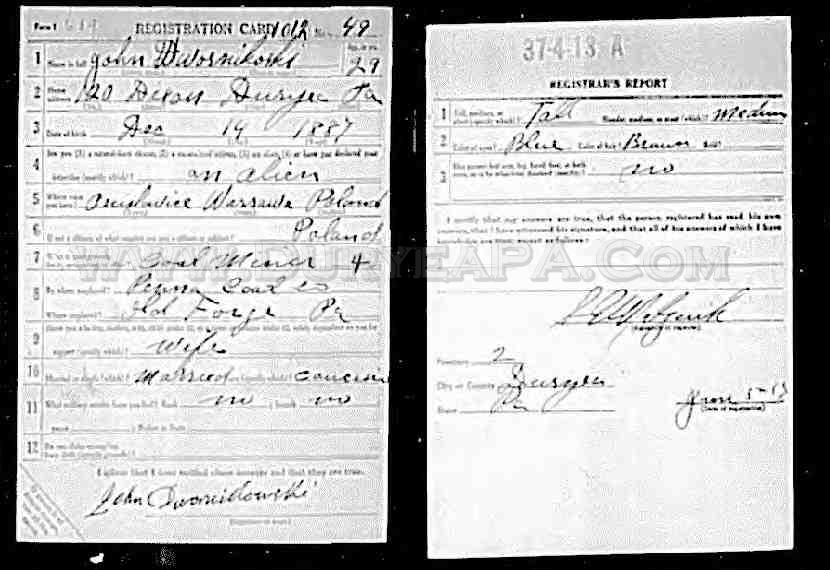 Form 1
REGISTRATION CARD No. 49
1 Name in full John Dwornikoski Age, in yrs. 29
2 Home address 120 Dixon Duryea Pa
3 Date of birth Dec 19 1887
4 Are you (1) a natural-born citizen, (2) a naturalized citizen, (3) an alien, (4) or have you declared your
intention (specify which)? an alien
5 Where were you born? Warsawa Poland
6 If not a citizen, of what country are you a citizen or subject? Poland
7 Coal Miner 4
8 By whom employed? Coal Co
Where employed? Old Forge Pa
9 Have you a father, mother, wife, child under 12, or a sister or brother under 12, solely dependent on you for
support (specify which)? Wife
10 Married or single (which)? Married Race (specify which)?
11 What military service have you had? Rank no ; branch no
years ; Nation or State
12 Do you claim exemption
from draft (specify grounds)?
I affirm that I have verified above answers and that they are true.
John Dwornikowski
37-4-13 A
REGISTRAR'S REPORT
1 Tall, medium, or short (specify which)? Tall Slender, medium, or stout (which)? Medium
2 Color of eyes? Blue Color of hair? Brown Bald?
3 Has person lost arm, leg, hand, foot, or both eyes, or is he otherwise disabled (specify)? no
I certify that my answers are true, that the person registered has read his own
answers, that I have witnessed his signature, and that all of his answers of which I have
knowledge are true, except as follows:
(Signature of registrar)
Precinct 2
City or County Duryea
State Pa
June 5-17
(Date of registration)
www.DuryeaPA.Com